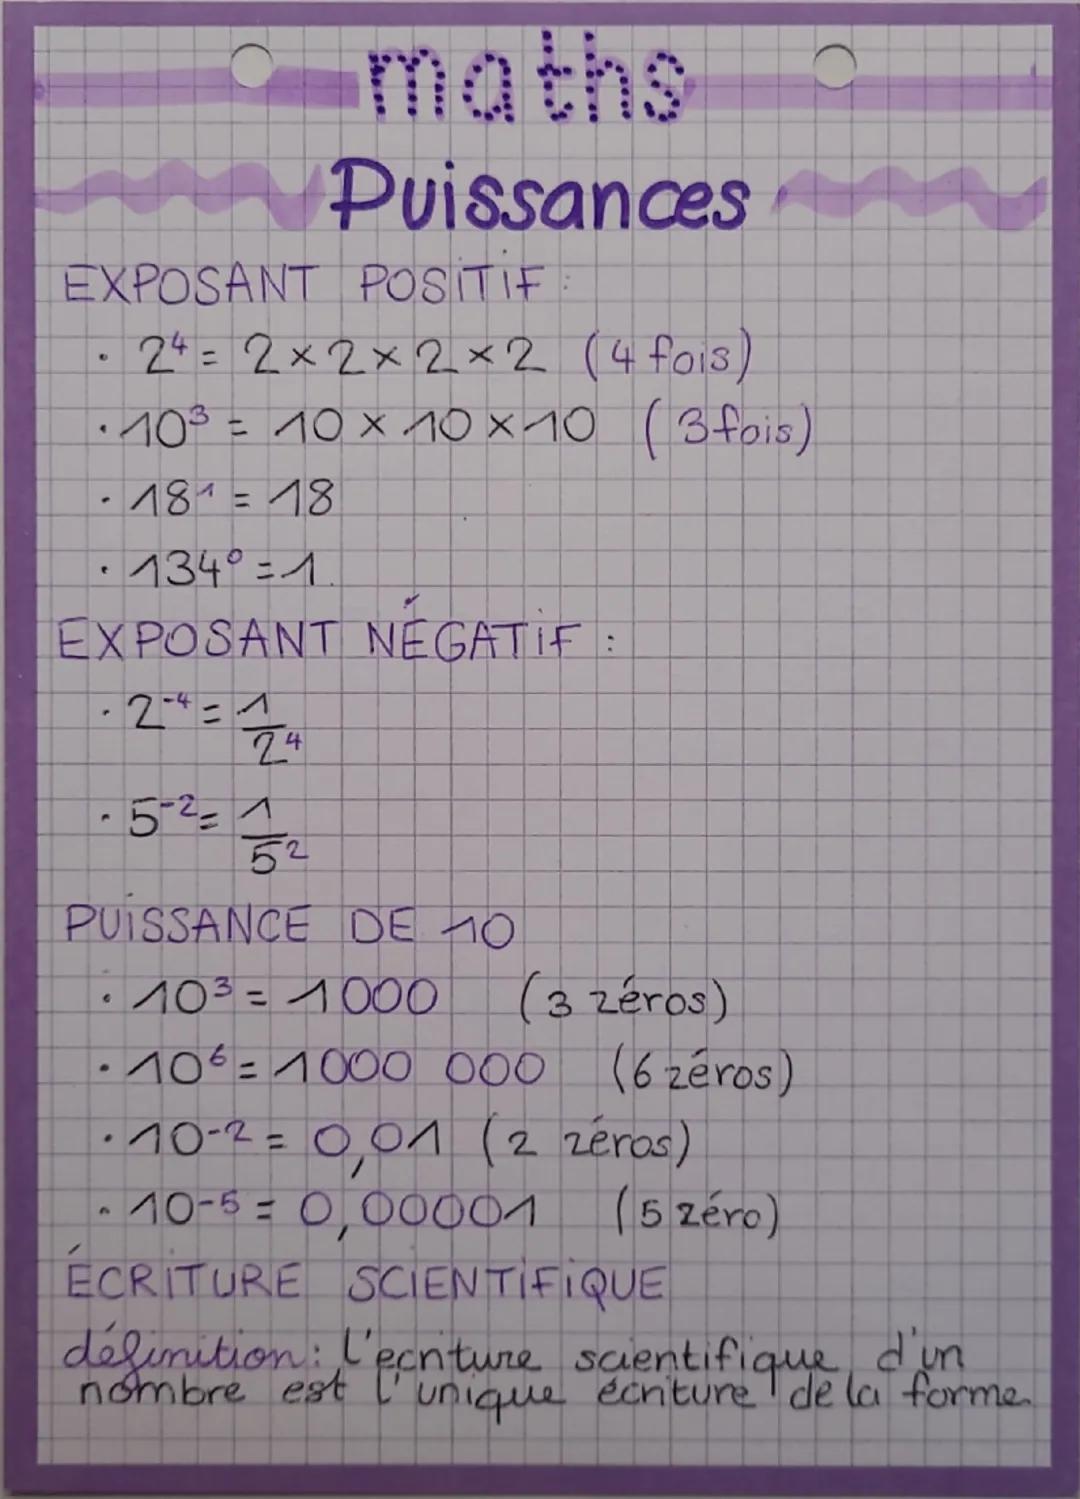 maths
Puissances
EXPOSANT POSITIF :
· 2⁴ = 2 × 2 × 2 × 2 (4 fois)
· 10³ = 10 × 10 × 10 (3 fois)
· 18¹ = 18
· 134⁰ = 1.
EXPOSANT NÉGATIF :
· 2⁻⁴ = 1/2⁴
· 5⁻² = 1/5²
PUISSANCE DE 10
· 10³ = 1000 (3 zéros)
· 10⁶ = 1000 000 (6 zéros)
· 10⁻² = 0,01 (2 zéros)
· 10⁻⁵ = 0,00001 (5 zéro)
ÉCRITURE SCIENTIFIQUE
définition : l'ecriture scientifique d'un
nombre est l'unique écriture de la forme